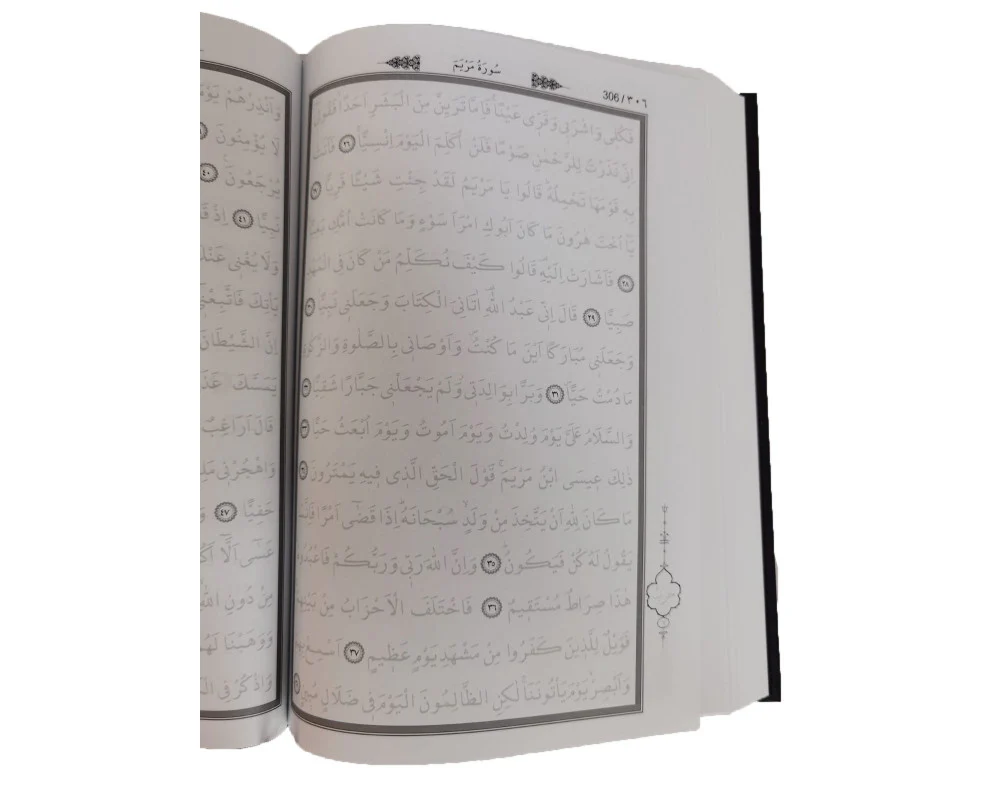 سُورَةُ مَرْيَمَ
306 / ٣٠٦
فَكُلٖى وَاشْرَبٖى وَقَرّٖى عَيْنًا فَاِمَّا تَرَيِنَّ مِنَ الْبَشَرِ اَحَدًا فَقُولٖى
اِنّٖى نَذَرْتُ لِلرَّحْمٰنِ صَوْمًا فَلَنْ اُكَلِّمَ الْيَوْمَ اِنْسِيًّا ٢٦ فَاَتَتْ
بِهٖ قَوْمَهَا تَحْمِلُهُ قَالُوا يَا مَرْيَمُ لَقَدْ جِئْتِ شَيْئًا فَرِيًّا
يَٓا اُخْتَ هٰرُونَ مَا كَانَ اَبُوكِ امْرَاَ سَوْءٍ وَمَا كَانَتْ اُمُّكِ بَغِيًّا
٢٨ فَاَشَارَتْ اِلَيْهِ قَالُوا كَيْفَ نُكَلِّمُ مَنْ كَانَ فِى الْمَهْدِ
صَبِيًّا ٢٩ قَالَ اِنّٖى عَبْدُ اللّٰهِ اٰتَانِىَ الْكِتَابَ وَجَعَلَنٖى نَبِيًّا
وَجَعَلَنٖى مُبَارَكًا اَيْنَ مَا كُنْتُ وَاَوْصَانٖى بِالصَّلٰوةِ وَالزَّكٰوةِ
مَا دُمْتُ حَيًّا ٣١ وَبَرًّا بِوَالِدَتٖى وَلَمْ يَجْعَلْنٖى جَبَّارًا شَقِيًّا
وَالسَّلَامُ عَلَىَّ يَوْمَ وُلِدْتُ وَيَوْمَ اَمُوتُ وَيَوْمَ اُبْعَثُ حَيًّا
ذٰلِكَ عٖيسَى ابْنُ مَرْيَمَ قَوْلَ الْحَقِّ الَّذٖى فٖيهِ يَمْتَرُونَ
مَا كَانَ لِلّٰهِ اَنْ يَتَّخِذَ مِنْ وَلَدٍ سُبْحَانَهُ اِذَا قَضٰٓى اَمْرًا فَاِنَّمَا
يَقُولُ لَهُ كُنْ فَيَكُونُ ٣٥ وَاِنَّ اللّٰهَ رَبّٖى وَرَبُّكُمْ فَاعْبُدُوهُ
هٰذَا صِرَاطٌ مُسْتَقٖيمٌ ٣٦ فَاخْتَلَفَ الْاَحْزَابُ مِنْ بَيْنِهِمْ
فَوَيْلٌ لِلَّذٖينَ كَفَرُوا مِنْ مَشْهَدِ يَوْمٍ عَظٖيمٍ ٣٧ اَسْمِعْ بِهِمْ
وَاَبْصِرْ يَوْمَ يَاْتُونَنَا لٰكِنِ الظَّالِمُونَ الْيَوْمَ فٖى ضَلَالٍ مُبٖينٍ
وَاَنْذِرْهُمْ يَوْمَ
لَا يُؤْمِنُونَ
يُرْجَعُونَ ٤٠
نَبِيًّا ٤١ اِذْ قَا
وَلَا يُغْنٖى عَنْكَ
يَاْتِكَ فَاتَّبِعْنٖٓى
اِنَّ الشَّيْطَانَ
يَمَسَّكَ عَذَا
قَالَ اَرَاغِبٌ
وَاهْجُرْنٖى مَلِ
حَفِيًّا ٤٧ وَ
عَسٰٓى اَلَّٓا اَكُ
مِنْ دُونِ اللّٰهِ
وَوَهَبْنَا لَهُمْ
وَاذْكُرْ فِى الْ